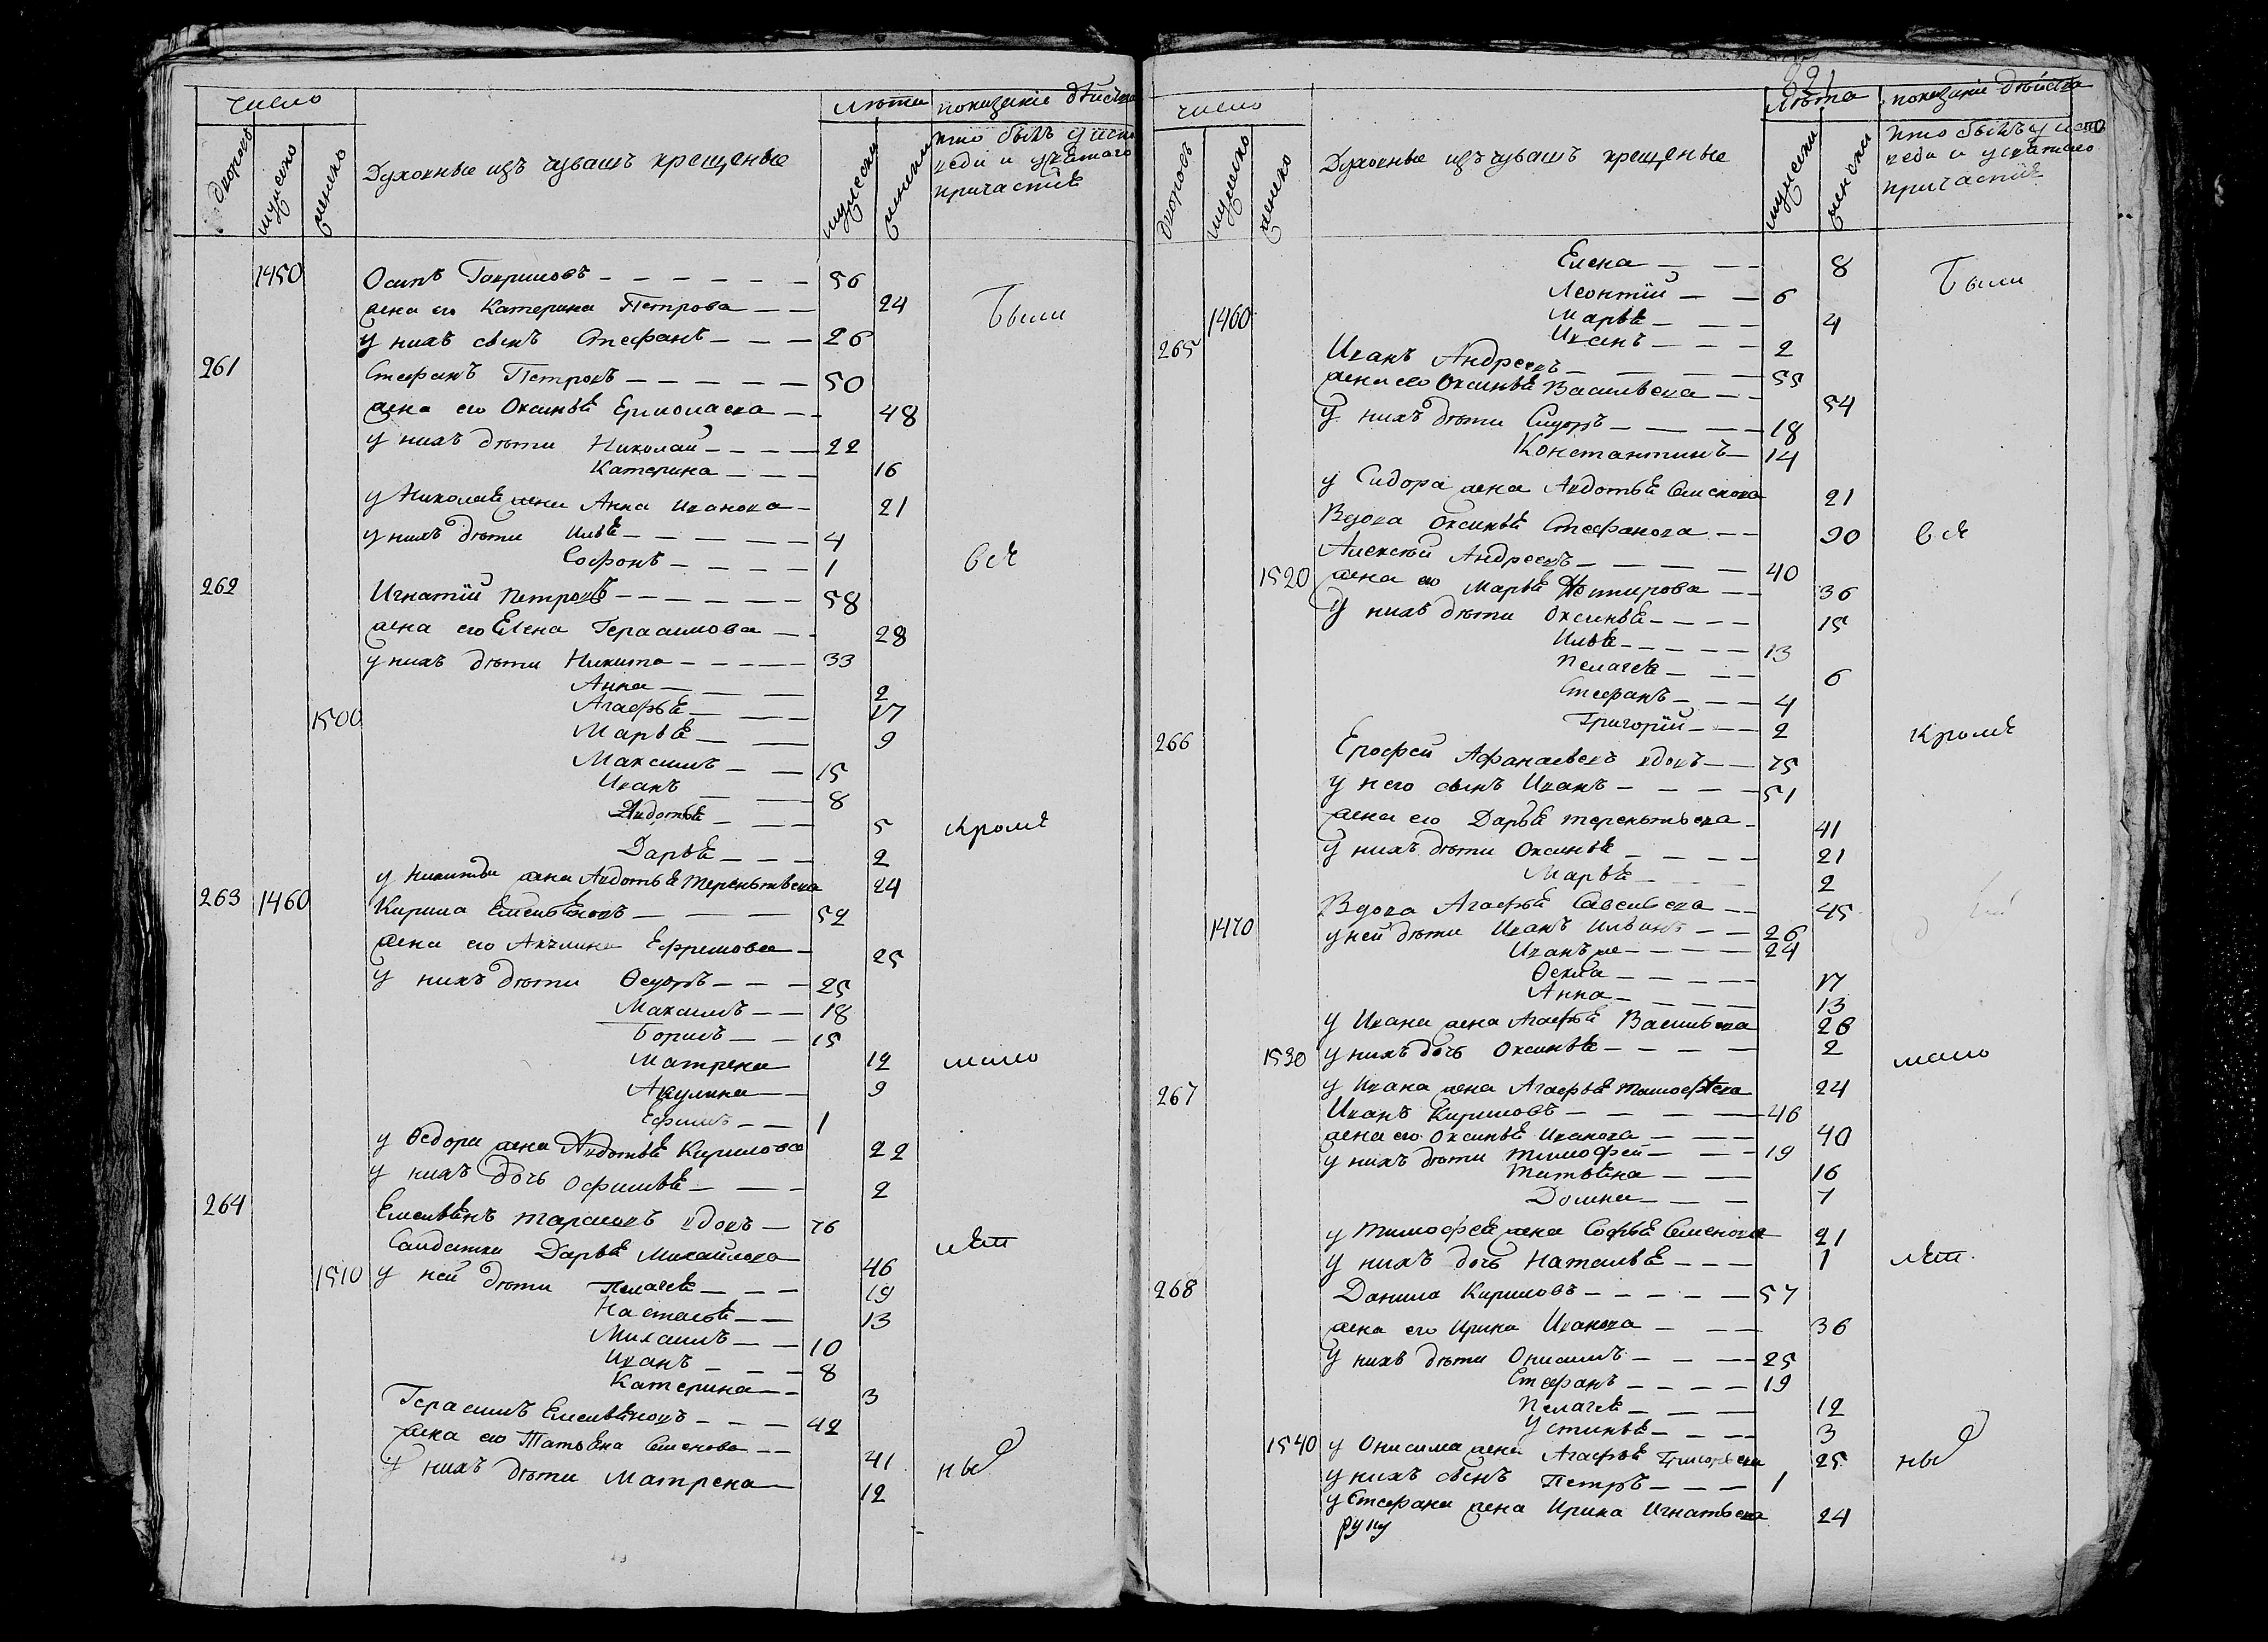 число
лѣта показание дѣйства
дворовъ
мужеско
женско
Духовные изъ чувашъ крещеные
мужески
женски
кто былъ у испо
веди и у святаго
причастиѣ
1450 Осипъ Гавриловъ 56
жена его Катерина Петрова 24
Были
у нихъ сынъ Стефанъ 26
261 Стефанъ Петровъ 50
жена его Оксиньѣ Ермолаева 48
у нихъ дѣти Николай 22
Катерина 16
у Николаѣ жена Анна Иванова 21
у нихъ дѣти Ильѣ 4
Софонъ 1
всѣ
262 Игнатiй Петровъ 58
жена его Елена Герасимова 28
у нихъ дѣти Никита 33
Анна 2
1500 Агафьѣ 17
Марьѣ 9
Максимъ 15
Иванъ 8
Авдотьѣ 5
кромѣ
Дарьѣ 2
у Никиты жена Авдотьѣ Терентьева 24
263 1460 Кирила Емельѣновъ 52
жена его Акулина Ефремова 25
у нихъ дѣти Ѳедоръ 25
Максимъ 18
Борисъ 15
Матрена 12
мало
Акулина 9
Ефимъ 1
у Ѳедора жена Авдотьѣ Кирилова 22
у нихъ дочь Офимьѣ 2
264 Емельѣнъ Тарасовъ вдовъ 76
Салдатка Дарьѣ Михайлова 46
лѣт
1510 у ней дѣти Пелагеѣ 19
Настасьѣ 13
Михаилъ 10
Иванъ 8
Катерина 3
Герасимъ Емельѣновъ 42
жена его Татьѣна Семенова 41
у нихъ дѣти Матрена 12
ны
921
число
лѣта показание дѣйства
дворовъ
мужеско
женско
Духовные изъ чувашъ крещеные
мужески
женски
кто былъ у испо
веди и у святаго
причастиѣ
Елена 8
Были
Леонтiй 6
1460 Марьѣ 4
Иванъ 2
265 Иванъ Андреевъ 55
жена его Оксиньѣ Васильева 54
у нихъ дѣти Сидоръ 18
Константинъ 14
у Сидора жена Авдотьѣ Семенова 21
Вдова Оксиньѣ Стефанова 90
всѣ
Алексѣй Андреевъ 40
1520 жена его Марьѣ 36
у нихъ дѣти Оксиньѣ 15
Ильѣ 13
Пелагеѣ 6
Стефанъ 4
Григорiй 2
кромѣ
266 Ерофей Афанасьевъ вдовъ 75
у него сынъ Иванъ 51
жена его Дарьѣ Терентьева 41
у нихъ дѣти Оксиньѣ 21
Марьѣ 2
Вдова Агафьѣ Савельева 45
1470 у ней дѣти Иванъ Ильинъ 26
Иванъ же 24
Ѳекла 17
Анна 13
у Ивана жена Агафьѣ Васильева 26
1530 у нихъ дочь Оксиньѣ 2
мало
у Ивана жена Агафьѣ Тимофѣева 24
267 Иванъ Кириловъ 46
жена его Оксиньѣ Иванова 40
у нихъ дѣти Тимофей 19
Татьѣна 16
Домна 7
у Тимофеѣ жена Софьѣ Семенова 21
у нихъ дочь Натальѣ 1
лѣт
268 Данила Кириловъ 57
жена его Ирина Иванова 36
у нихъ дѣти Онисимъ 25
Стефанъ 19
Пелагеѣ 12
Устиньѣ 3
1540 у Онисима жена Агафьѣ Григорьева 25
ны
у нихъ сынъ Петръ 1
у Стефана жена Ирина Игнатьева 24
руку